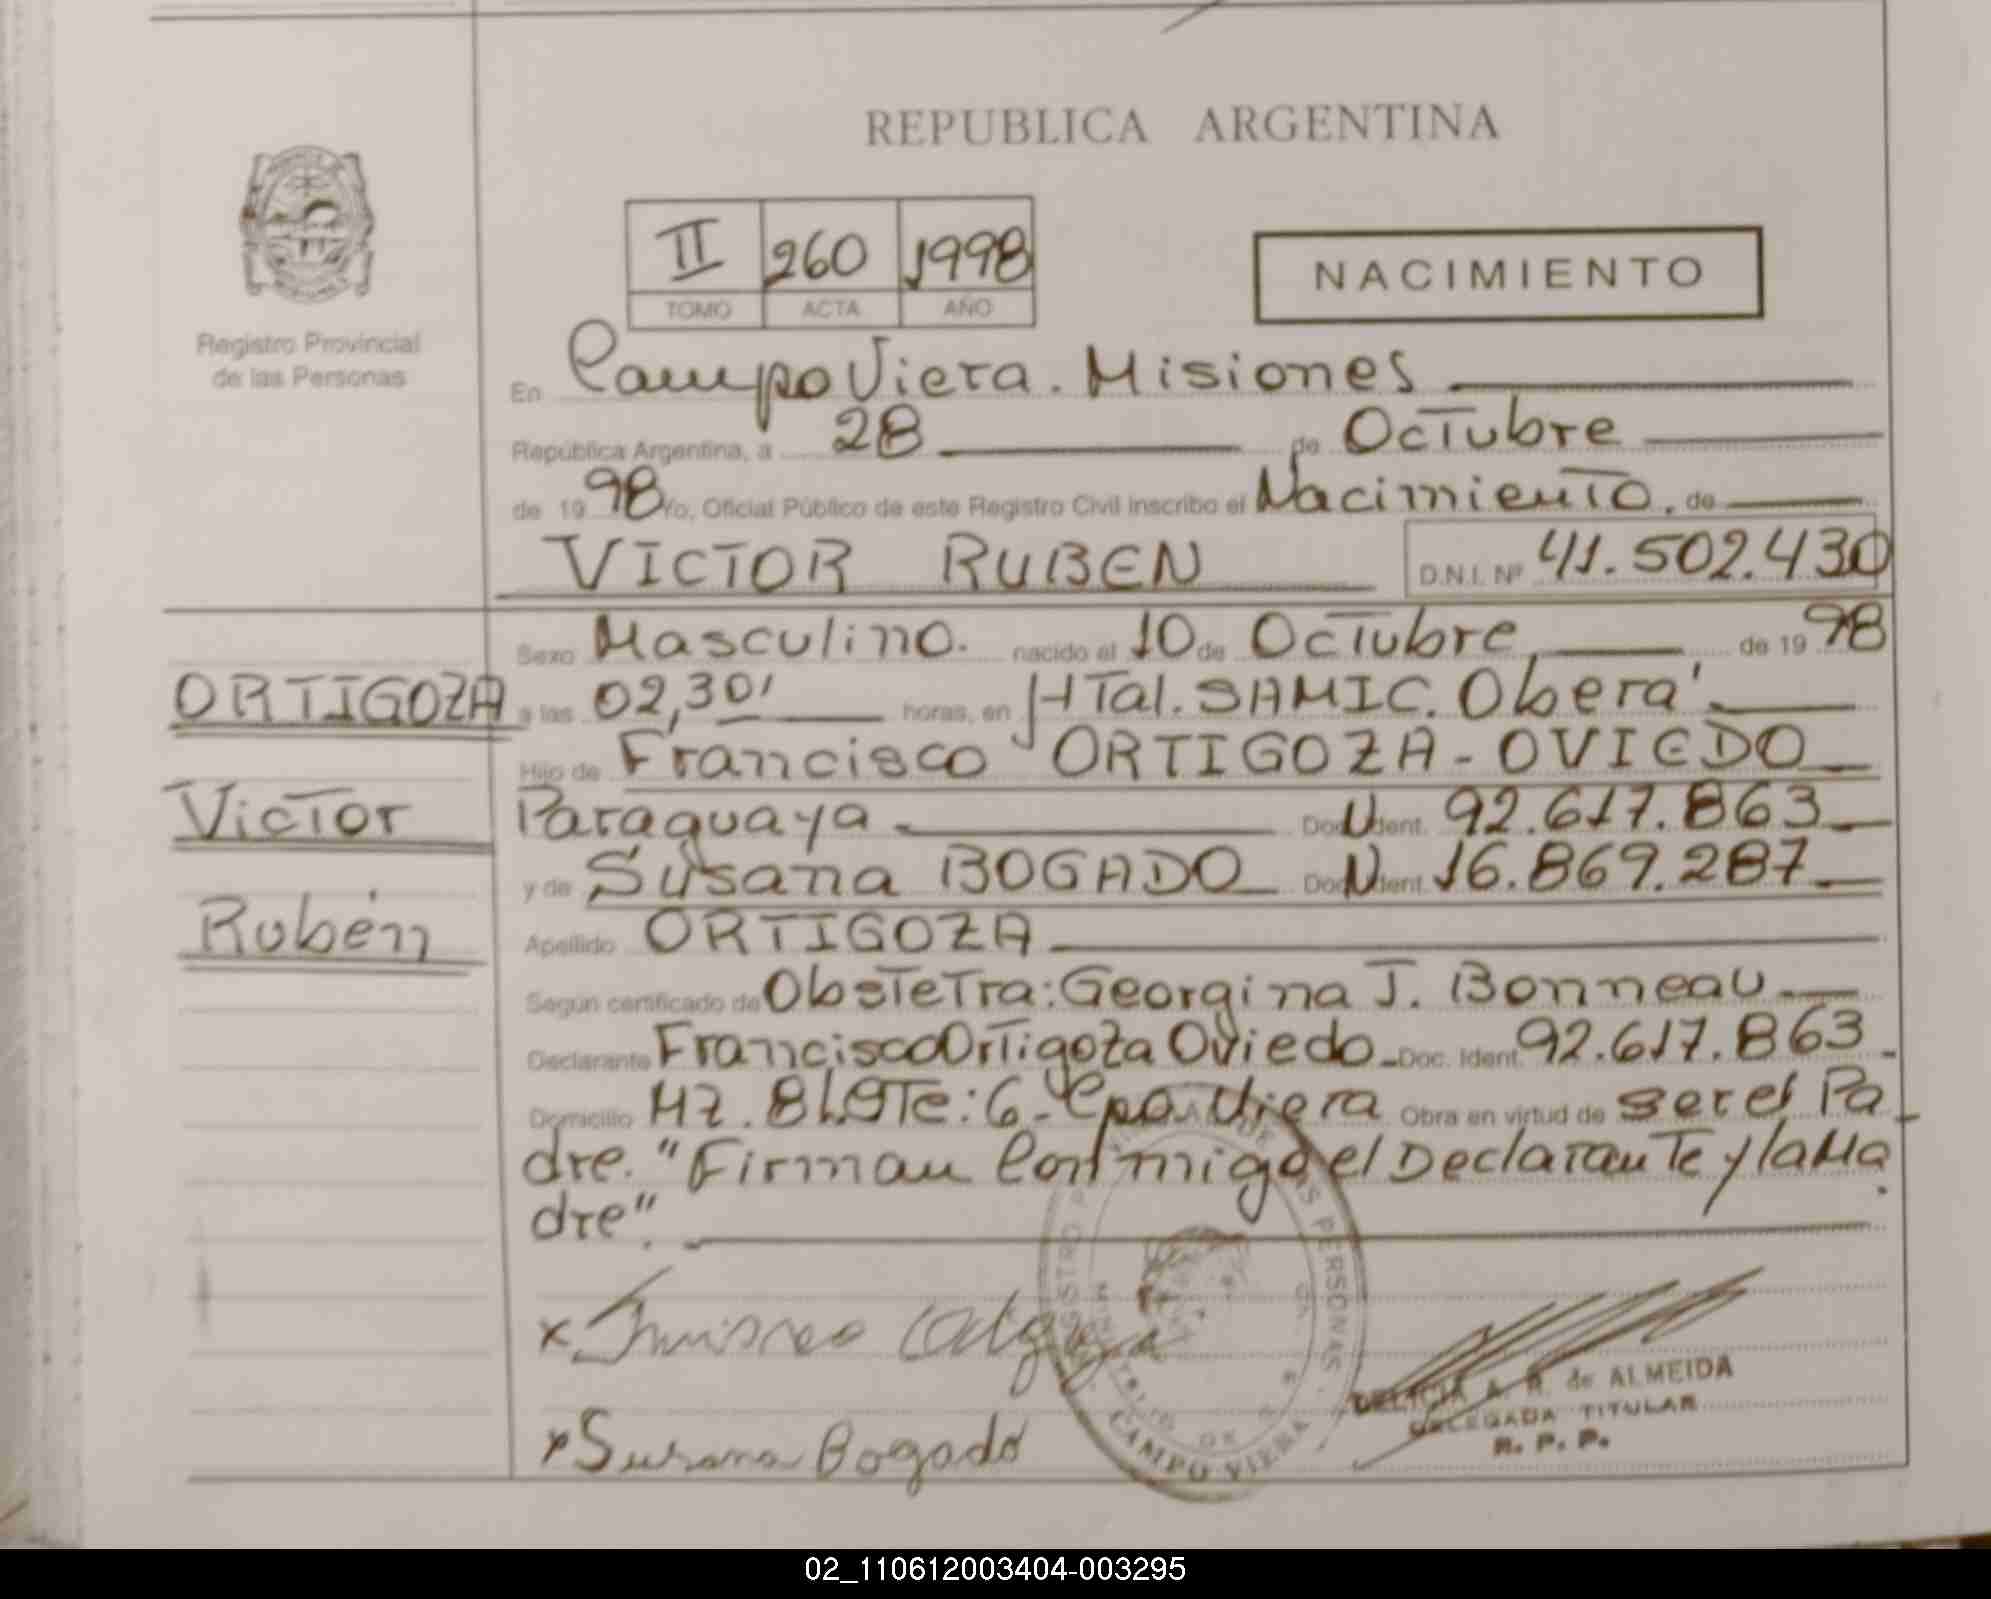 REPUBLICA ARGENTINA
II 260 1998
TOMO ACTA AÑO
NACIMIENTO
Registro Provincial
de las Personas
En Campo Viera. Misiones
República Argentina, a 28 de Octubre
de 1998 Yo, Oficial Público de este Registro Civil inscribo el Nacimiento, de
VICTOR RUBEN D.N.I. Nº 41.502.430
Sexo Masculino. nacido el 10 de Octubre de 1998
ORTIGOZA
a las 02,30' horas, en HTal. SAMIC. Oberá
Hijo de Francisco ORTIGOZA - OVIEDO
Victor
Paraguaya Doc. Ident. 92.617.863
y de Susana BOGADO Doc. Ident. 16.869.287
Rubén
Apellido ORTIGOZA
Según certificado de Obstetra: Georgina J. Bonneau
Declarante Francisco Ortigoza Oviedo - Doc. Ident. 92.617.863
Domicilio Mz. 8 LOTe: 6 - Cpo. Viera Obra en virtud de ser el Pa
dre. "Firman Conmigo el Declarante y la Ma
dre".
x Susana Bogado
CAMPO VIERA
DELICIA A. R. de ALMEIDA
DELEGADA TITULAR
R. P. P.
02_110612003404-003295